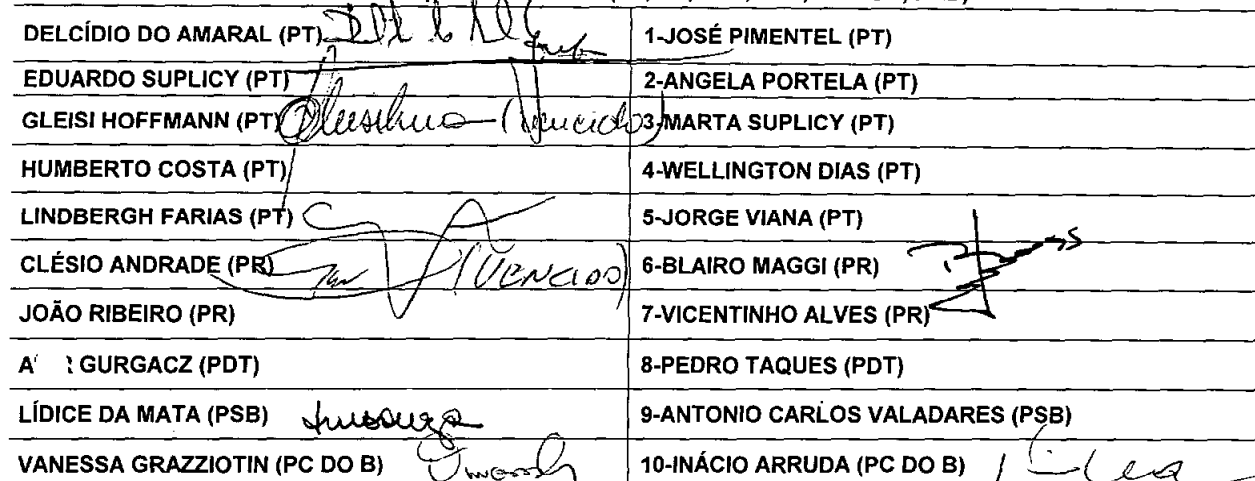 DELCÍDIO DO AMARAL (PT) 1-JOSÉ PIMENTEL (PT)
EDUARDO SUPLICY (PT) 2-ANGELA PORTELA (PT)
GLEISI HOFFMANN (PT) (Vencido) 3-MARTA SUPLICY (PT)
HUMBERTO COSTA (PT) 4-WELLINGTON DIAS (PT)
LINDBERGH FARIAS (PT) 5-JORGE VIANA (PT)
CLÉSIO ANDRADE (PR) (VENCIDO) 6-BLAIRO MAGGI (PR)
JOÃO RIBEIRO (PR) 7-VICENTINHO ALVES (PR)
GURGACZ (PDT) 8-PEDRO TAQUES (PDT)
LÍDICE DA MATA (PSB) 9-ANTONIO CARLOS VALADARES (PSB)
VANESSA GRAZZIOTIN (PC DO B) 10-INÁCIO ARRUDA (PC DO B)